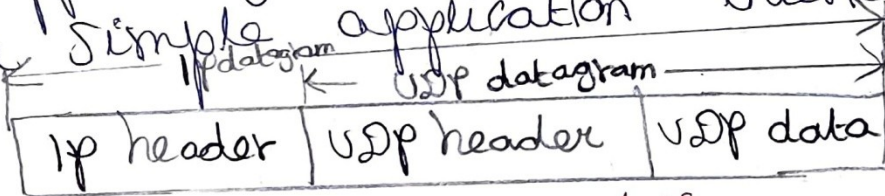 Simple application
IP datagram
UDP datagram
IP header UDP header UDP data